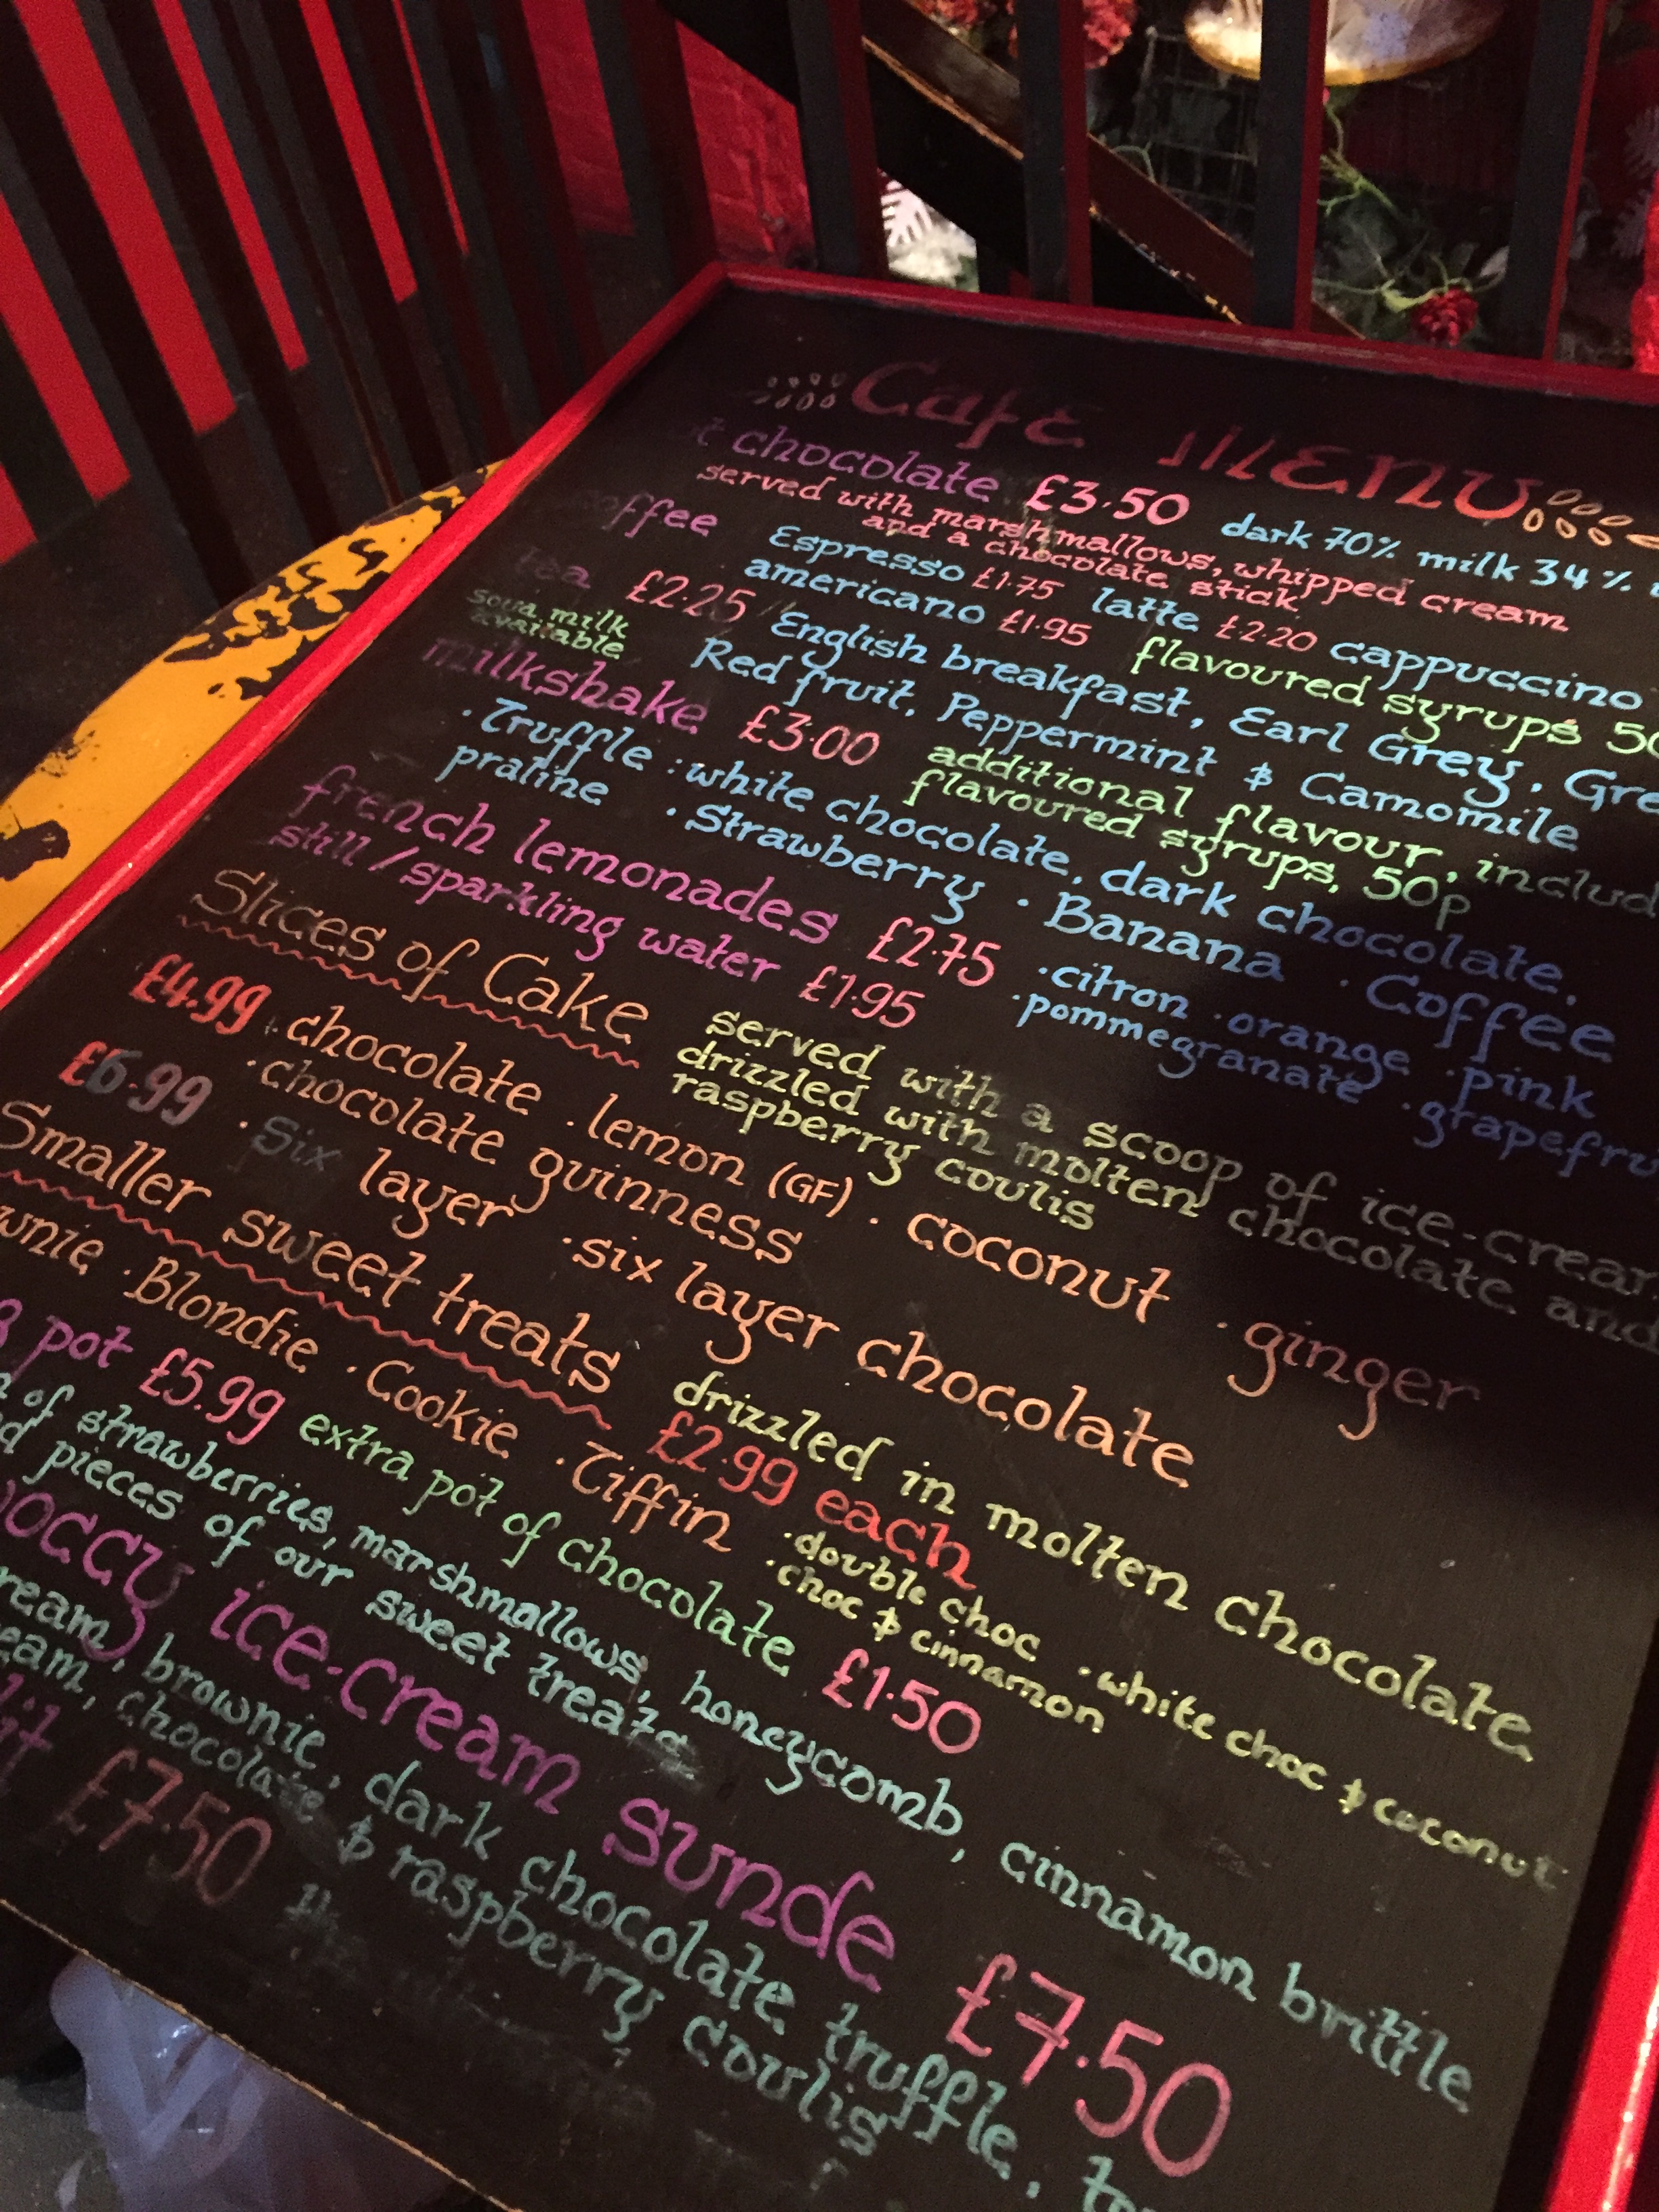 Café Menu
t chocolate £3.50 dark 70% milk 34%
served with marshmallows, whipped cream
and a chocolate stick
offee Espresso £1.75 latte £2.20 cappuccino
americano £1.95 flavoured syrups 50
tea £2.25 English breakfast, Earl Grey, Gre
soya milk
available
Red fruit, Peppermint & Camomile
milkshake £3.00 additional flavour, includ
flavoured syrups, 50p
· Truffle : white chocolate, dark chocolate,
praline · Strawberry · Banana · Coffee
french lemonades £2.75 · citron · orange · pink
still/sparkling water £1.95 · pommegranate · grapefru
Slices of Cake served with a scoop of ice-cream
drizzled with molten chocolate and
raspberry coulis
£4.99 · chocolate · lemon (GF) · coconut · ginger
· chocolate guinness
£6.99 · six layer · six layer chocolate
Smaller sweet treats drizzled in molten chocolate
£2.99 each
wnie · Blondie · Cookie · Tiffin · double choc · white choc & coconut
· choc & cinnamon
g pot £5.99 extra pot of chocolate £1.50
of strawberries, marshmallows, honeycomb, cinnamon brittle
d pieces of our sweet treats
occy ice-cream sunde £7.50
ream, brownie, dark chocolate truffle,
eam, chocolate & raspberry coulis
lit £7.50